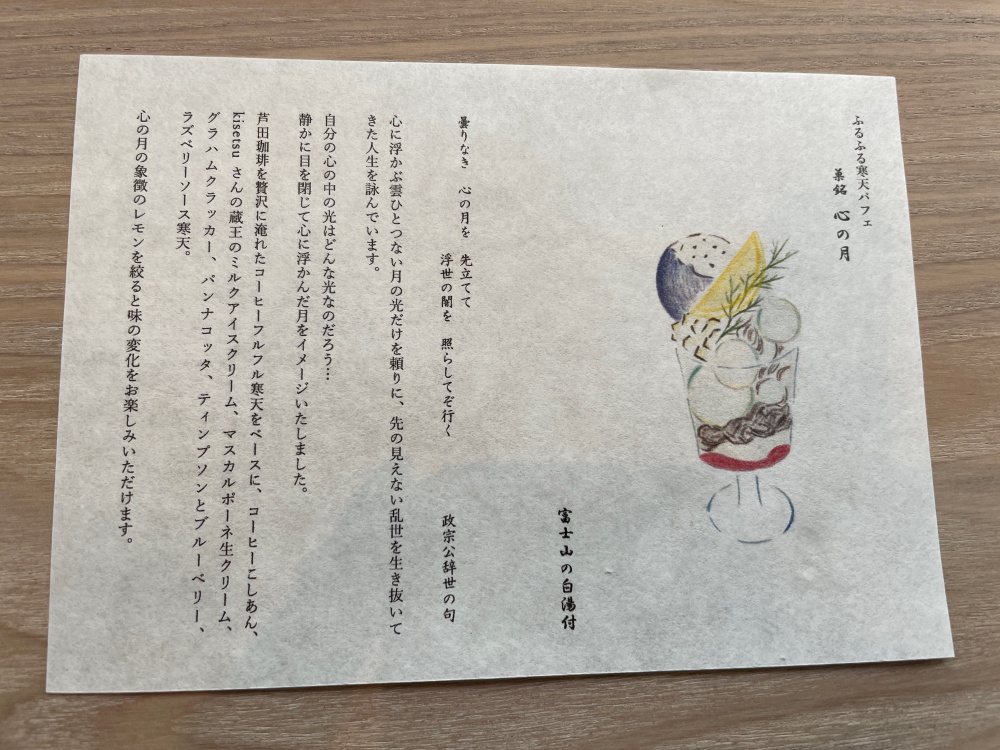 ふるふる寒天パフェ
菓銘 心の月
富士山の白湯付
曇りなき 心の月を 先立てて
浮世の闇を 照らしてぞ行く
政宗公辞世の句
心に浮かぶ雲ひとつない月の光だけを頼りに、先の見えない乱世を生き抜いて
きた人生を詠んでいます。
自分の心の中の光はどんな光なのだろう…
静かに目を閉じて心に浮かんだ月をイメージいたしました。
芦田珈琲を贅沢に淹れたコーヒーフルフル寒天をベースに、コーヒーこしあん、
kisetsu さんの蔵王のミルクアイスクリーム、マスカルポーネ生クリーム、
グラハムクラッカー、パンナコッタ、ティンプソンとブルーベリー、
ラズベリーソース寒天。
心の月の象徴のレモンを絞ると味の変化をお楽しみいただけます。